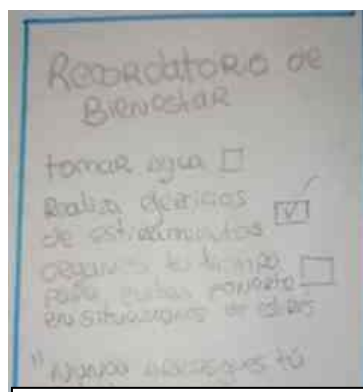 Recordatorio de
Bienestar
tomar agua
Realiza ejercicios
de estiramientos
organiza tu tiempo
para evitar ponerte
en situaciones de estrés
"Nunca
tú